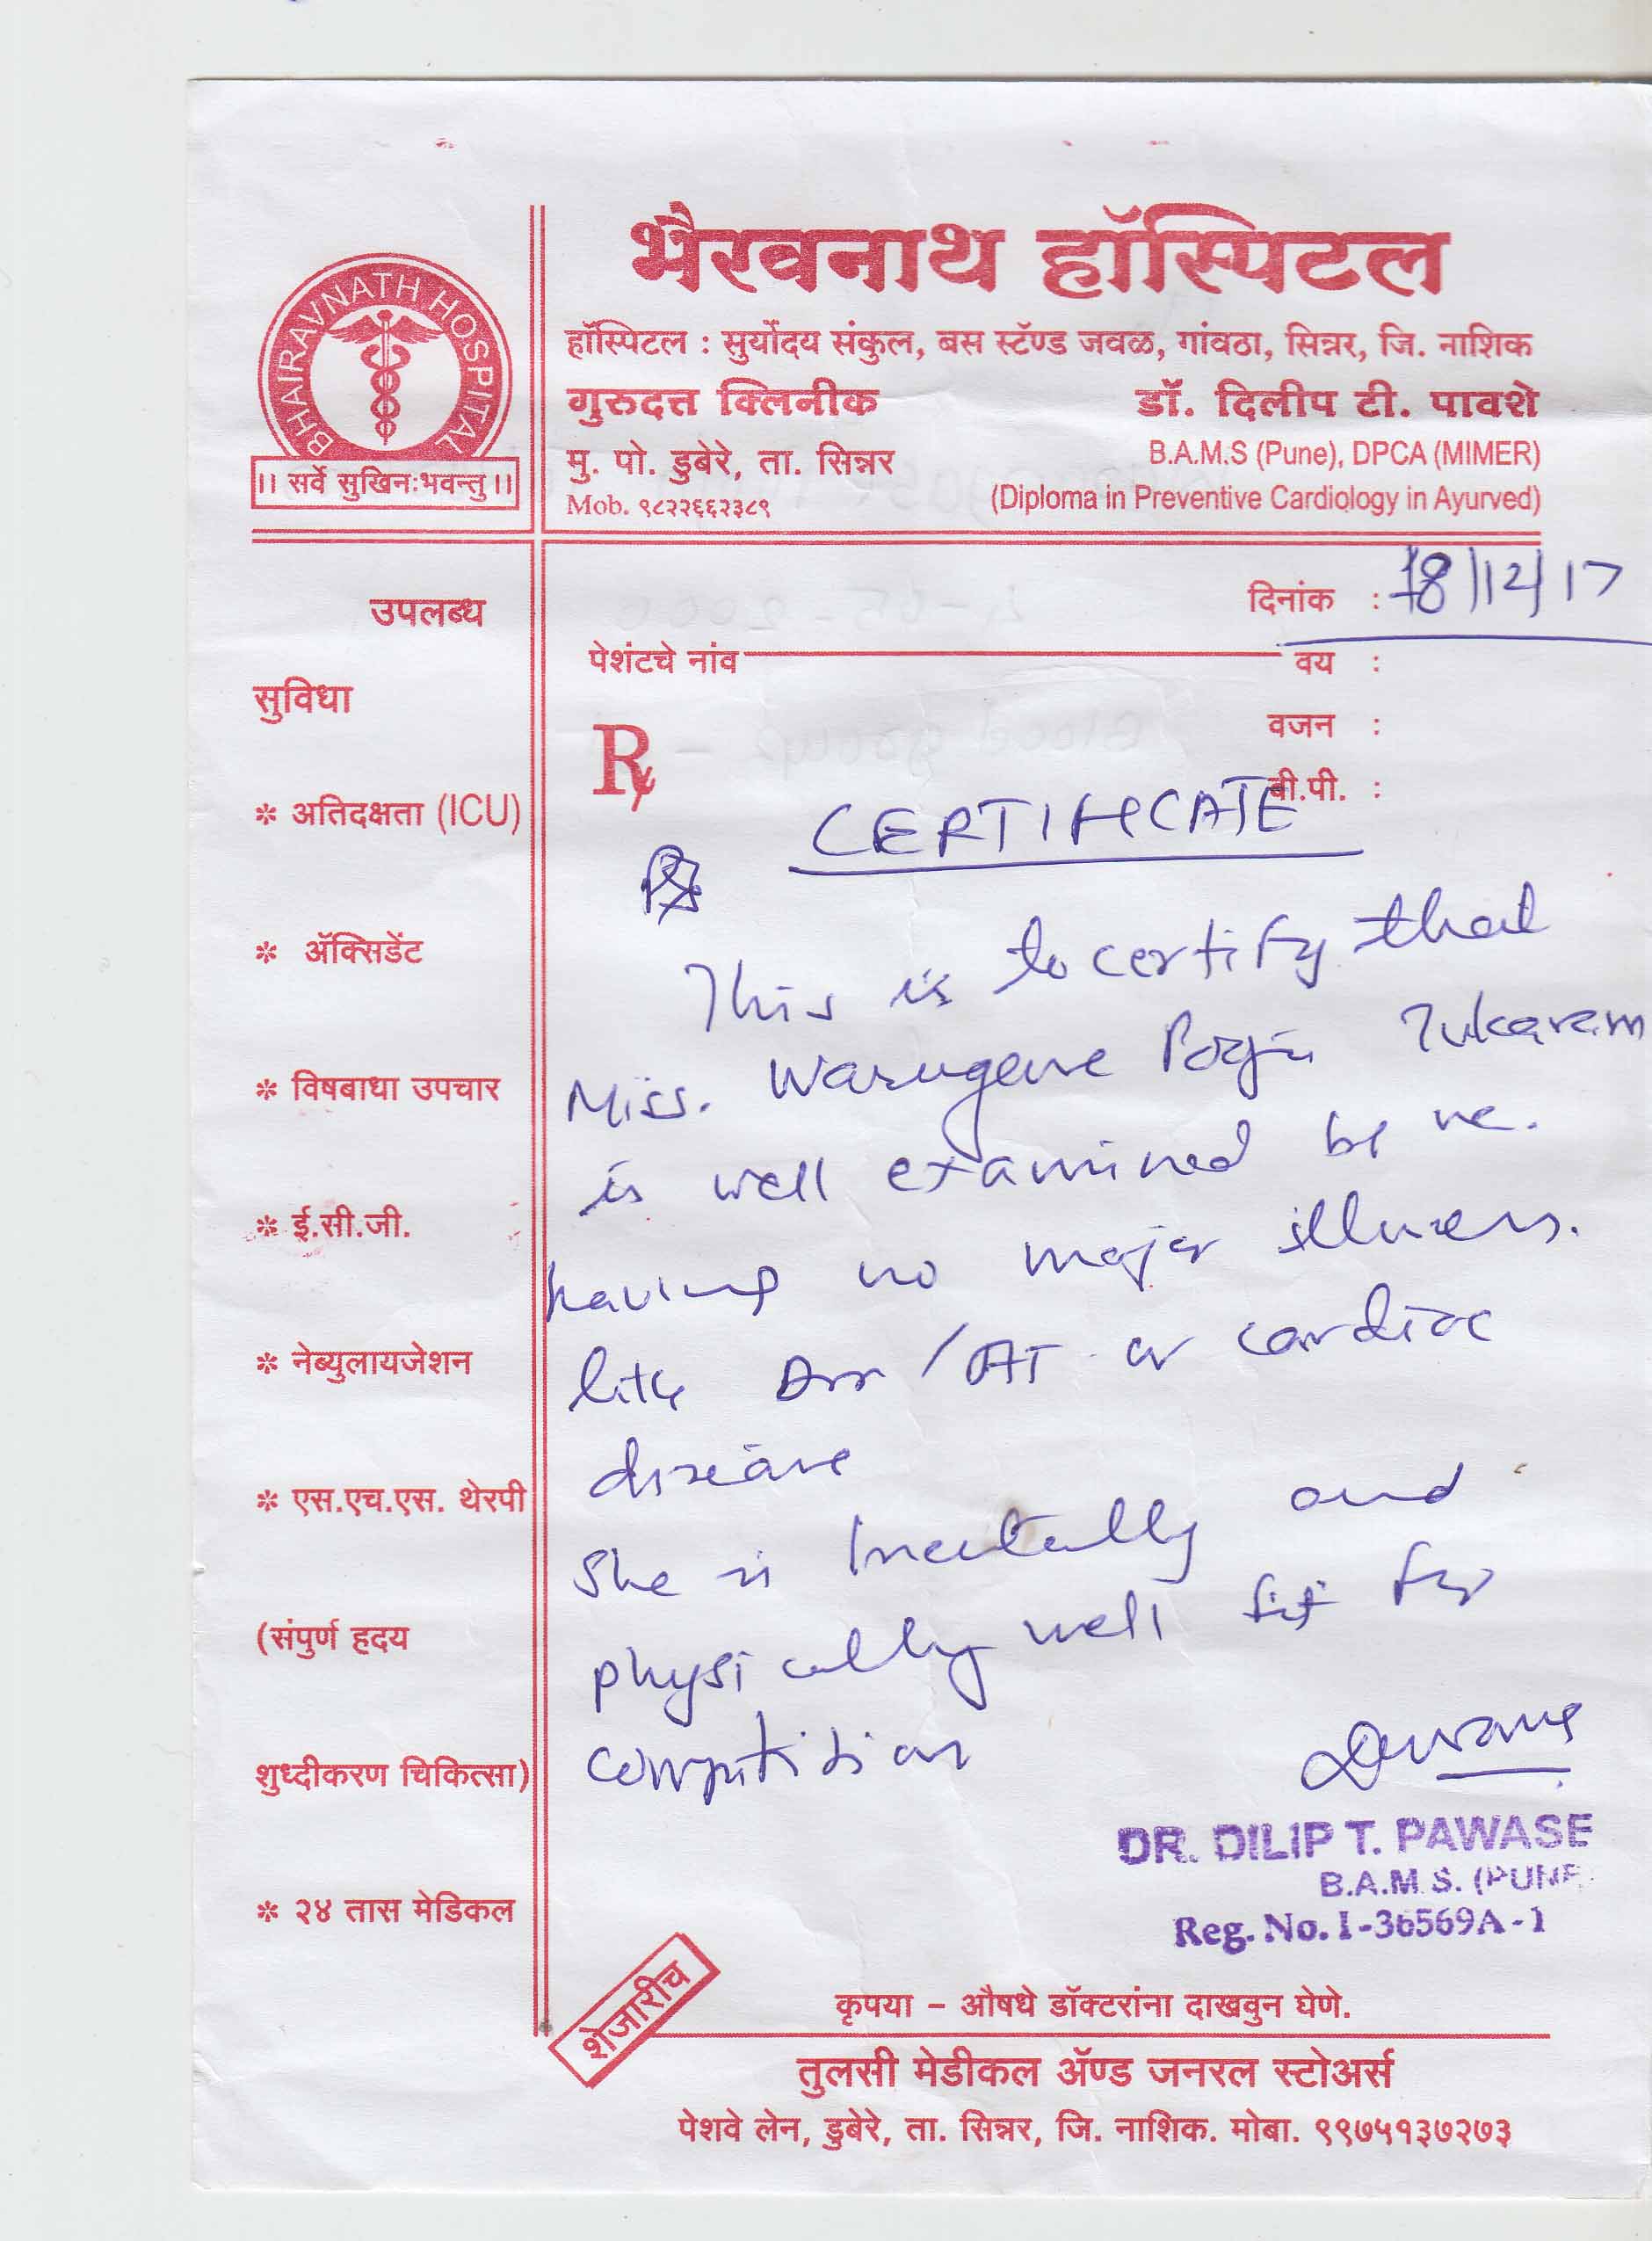 भैरवनाथ हॉस्पिटल
BHAIRAVNATH HOSPITAL
।। सर्वे सुखिनःभवन्तु ।।
हॉस्पिटल : सुर्योदय संकुल, बस स्टॅण्ड जवळ, गांवठा, सिन्नर, जि. नाशिक
गुरुदत्त क्लिनीक
डॉ. दिलीप टी. पावशे
मु. पो. डुबेरे, ता. सिन्नर
B.A.M.S (Pune), DPCA (MIMER)
Mob. ९८२२६६२३८९
(Diploma in Preventive Cardiology in Ayurved)
उपलब्ध
सुविधा
* अतिदक्षता (ICU)
* ॲक्सिडेंट
* विषबाधा उपचार
* ई.सी.जी.
* नेब्युलायजेशन
* एस.एच.एस. थेरपी
(संपुर्ण हृदय
शुध्दीकरण चिकित्सा)
* २४ तास मेडिकल
दिनांक : 18/12/17
पेशंटचे नांव वय :
वजन :
℞ बी.पी. :
CERTIFICATE
This is to certify that
Miss. Tukaram
is well examined by me.
having no major illness.
like or cardiac
disease
She is mentally and
physically well fit for
DR. DILIP T. PAWASE
B.A.M.S. (PUNE
Reg. No. I-36569A-1
शेजारीच
कृपया – औषधे डॉक्टरांना दाखवुन घेणे.
तुलसी मेडीकल ॲण्ड जनरल स्टोअर्स
पेशवे लेन, डुबेरे, ता. सिन्नर, जि. नाशिक. मोबा. ९९७५१३७२७३